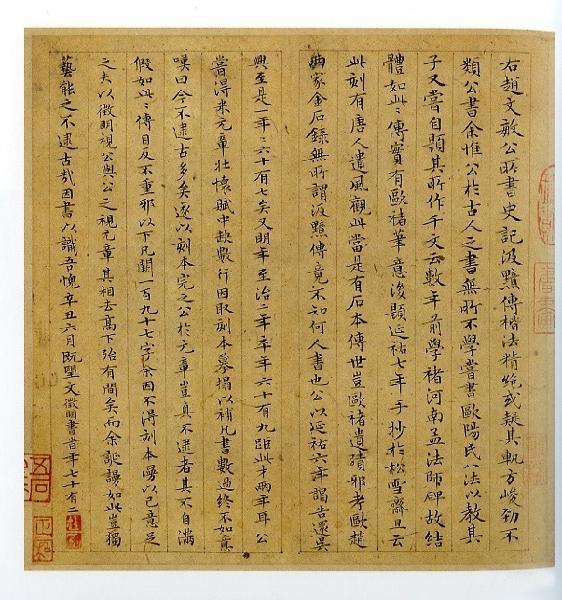 右趙文敏公所書史記汲黯傳楷法精絕或疑其軌方峻勁不
類公書余惟公於古人之書無所不學嘗書歐陽氏八法以教其
子又嘗自題其所作千文云數年前學褚河南孟法師碑故結
體如此〻傳實有歐褚筆意後題延祐七年手抄於松雪齋且云
此刻有唐人遺風觀此當是有石本傳世豈歐褚遺蹟邪考歐趙
兩家金石錄無所謂汲黯傳竟不知何人書也公以延祐六年謁告還吳
興至是一年六十有七矣又明年至治二年卒年六十有九距此才兩年耳公
嘗得米元章壯懷賦中缺數行因取刻本摹搨以補凡書數過終不如意
嘆曰今不逮古多矣遂以刻本完之公於元章豈真不逮者其不自滿
假如此〻傳自反不重邪以下凡闕一百九十七字余因不得刻本漫以己意足
之夫以徵明視公與公之視元章其相去高下殆有間矣而余誕謾如此豈獨
藝能之不逮古哉因書以識吾愧辛丑六月既望文徵明書旹年七十有二